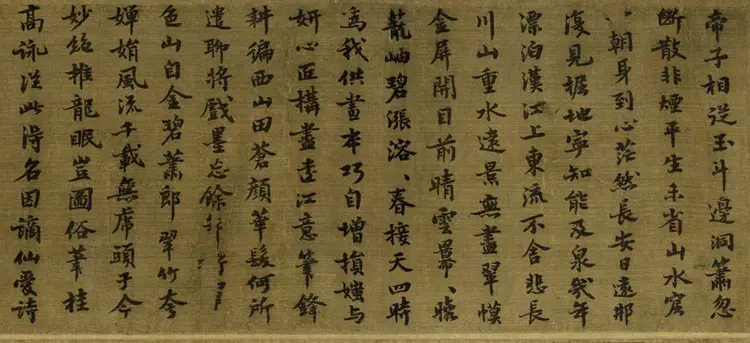 帝子相從玉斗邊洞簫忽
斷散非煙平生未省山水窟
朝身到心茫然長安日遠那
復見掘地寧知能及泉幾年
漂泊漢江上東流不舍悲長
川山重水遠景無盡翠幙
金屏開目前晴雲羃、曉
籠岫碧漲溶、春接天四時
為我供畫本巧自增損媸與
妍心匠構盡遠江意筆鋒
耕徧西山田蒼顏華髮何所
遣聊將戲墨忘餘
色山自金碧蕭郎翠竹夸
嬋娟風流千載無虎頭于今
妙絕推龍眠豈圖俗筆挂
高詠從此得名因謫仙愛詩